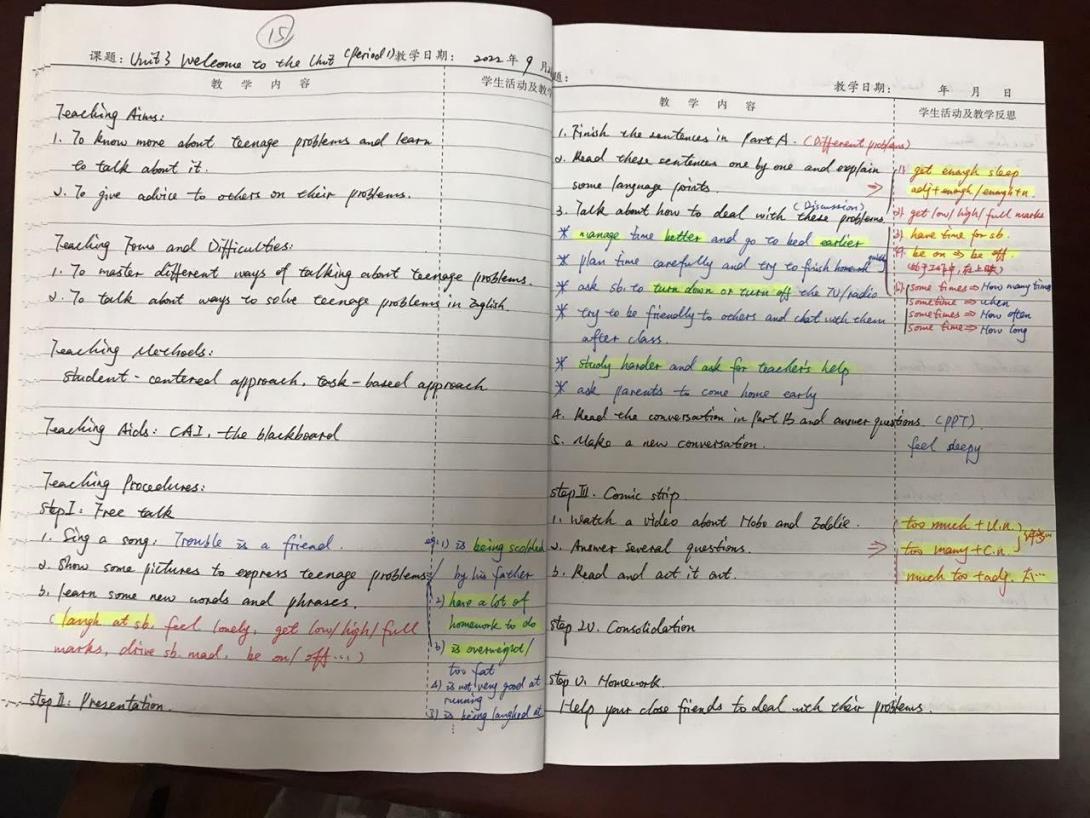 15
课题: Unit 3 Welcome to the Unit (Period 1) 教学日期: 2022年9月
教 学 内 容 学生活动及教学
Teaching Aims:
1. To know more about teenage problems and learn
to talk about it.
2. To give advice to others on their problems.
Teaching Focus and Difficulties:
1. To master different ways of talking about teenage problems.
2. To talk about ways to solve teenage problems in English.
Teaching Methods:
student-centered approach, task-based approach
Teaching Aids: CAI, the blackboard
Teaching Procedures:
step I: Free talk
1. Sing a song: Trouble is a friend.
2. Show some pictures to express teenage problems
3. learn some new words and phrases.
(laugh at sb. feel lonely, get low/high/full
marks, drive sb. mad, be on/off...)
step II: Presentation.
eg: 1) is being scolded
by his father
2) have a lot of
homework to do
3) is overweight/
too fat
4) is not very good at
running
5) is being laughed at
题: 教学日期: 年 月 日
教 学 内 容 学生活动及教学反思
1. Finish the sentences in Part A. (Different problems)
2. Read these sentences one by one and explain
some language points.
3. Talk about how to deal with these problems (Discussion)
* manage time better and go to bed earlier
* plan time carefully and try to finish homework
* ask sb. to turn down or turn off the TV/radio
* try to be friendly to others and chat with them
after class.
* study harder and ask for teacher's help
* ask parents to come home early
4. Read the conversation in Part B and answer questions. (PPT)
5. Make a new conversation.
feel sleepy
step III. Comic strip
1. Watch a video about Hobo and Eddie.
2. Answer several questions.
3. Read and act it out.
step IV. Consolidation
step V. Homework.
Help your close friends to deal with their problems.
1) get enough sleep
adj+enough/enough+n.
2) get low/high/full marks
3) have time for sb.
4) be on => be off.
5) some times => How many times
sometime => when
sometimes => How often
some time => How long
too much + U.n.
too many + C.n.
much too + adj. 太...